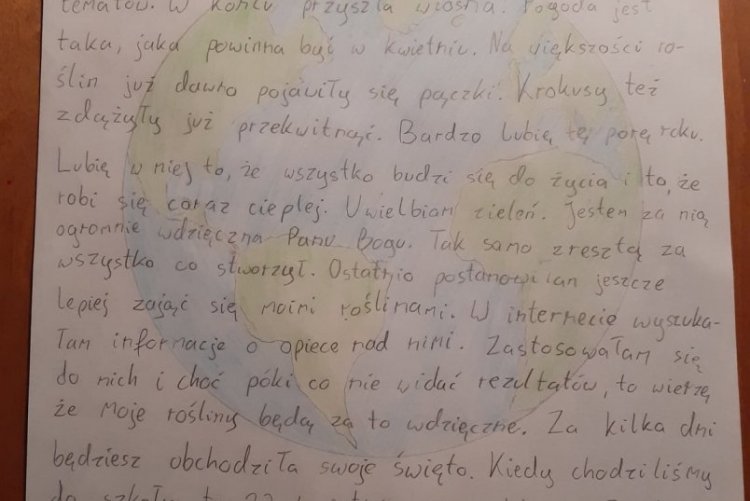 tematów. W końcu przyszła wiosna. Pogoda jest
taka, jaka powinna być w kwietniu. Na większości ro-
ślin już dawno pojawiły się pączki. Krokusy też
zdążyły już przekwitnąć. Bardzo lubię tę porę roku.
Lubię w niej to, że wszystko budzi się do życia i to, że
robi się coraz cieplej. Uwielbiam zieleń. Jestem za nią
ogromnie wdzięczna Panu Bogu. Tak samo zresztą za
wszystko co stworzył. Ostatnio postanowiłam jeszcze
lepiej zająć się moimi roślinami. W internecie wyszuka-
łam informacje o opiece nad nimi. Zastosowałam się
do nich i choć póki co nie widać rezultatów, to wierzę
że moje rośliny będą za to wdzięczne. Za kilka dni
będziesz obchodziła swoje święto. Kiedy chodziliśmy
do szkoły, to 22